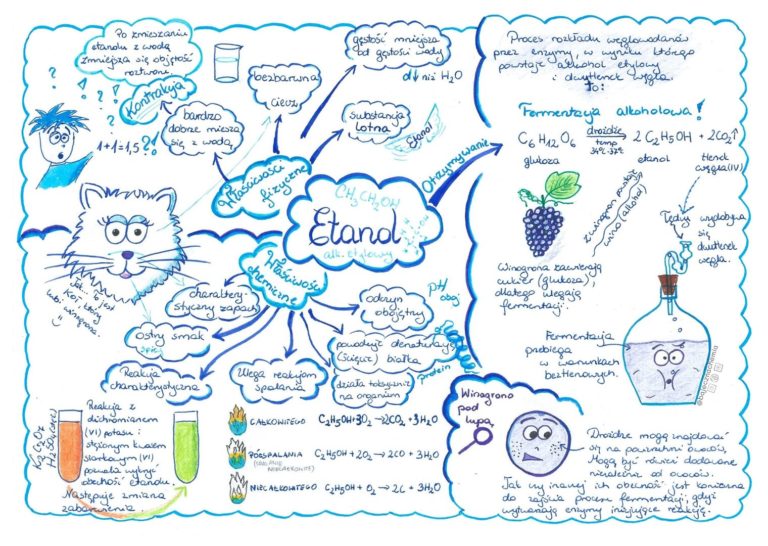 Po zmieszaniu
etanolu z wodą
zmniejsza się objętość
roztworu
Kontrakcja
1+1=1,5?!
bardzo
dobrze miesza
się z wodą
bezbarwna
ciecz
gęstość mniejsza
od gęstości wody
d↓ niż H2O
substancja
lotna
etanol
Właściwości
fizyczne
CH3CH2OH
Etanol
alk. etylowy
Otrzymywanie
Proces rozkładu węglowodanów
przez enzymy, w wyniku którego
powstaje alkohol etylowy
i dwutlenek węgla
To:
Fermentacja alkoholowa!
C6H12O6 drożdże temp → 2 C2H5OH + 2CO2↑
glukoza
etanol
tlenek
węgla(IV)
z winogron powstaje
wino (alkohol)
Tędy wydobywa
się
dwutlenek
węgla.
Winogrona zawierają
cukier (glukoza),
dlatego ulegają
fermentacji.
Fermentacja
przebiega
w warunkach
beztlenowych.
@bajecznachemia
Właściwości
chemiczne
Jak się jest
kot, który
lubi winogrona
charaktery-
styczny zapach
Ostry smak
odczyn
obojętny
pH
oboj.
powoduje denaturację
(ścięcie) białka
protein
działa toksycznie
na organizm
Reakcja
charakterystyczna
Ulega reakcjom
spalania
K2Cr2O7
H2SO4(stęż)
Reakcja z
dichromianem
(VI) potasu i
stężonym kwasem
siarkowym (VI)
pozwala wykryć
obecność etanolu.
Następuje zmiana
zabarwienia.
CAŁKOWITEGO C2H5OH+3O2→2CO2+3H2O
PÓŁSPALANIA C2H5OH + 2O2 → 2CO + 3H2O
NIECAŁKOWITEGO C2H5OH + O2 → 2C + 3H2O
Winogrono
pod
lupą
Drożdże mogą znajdować
się na powierzchni owoców.
Mogą być również dodawane
niezależnie od owoców.
Jak by inaczej ich obecność jest konieczna
do zajścia procesu fermentacji, gdyż
wytwarzają enzymy inicjujące reakcję.